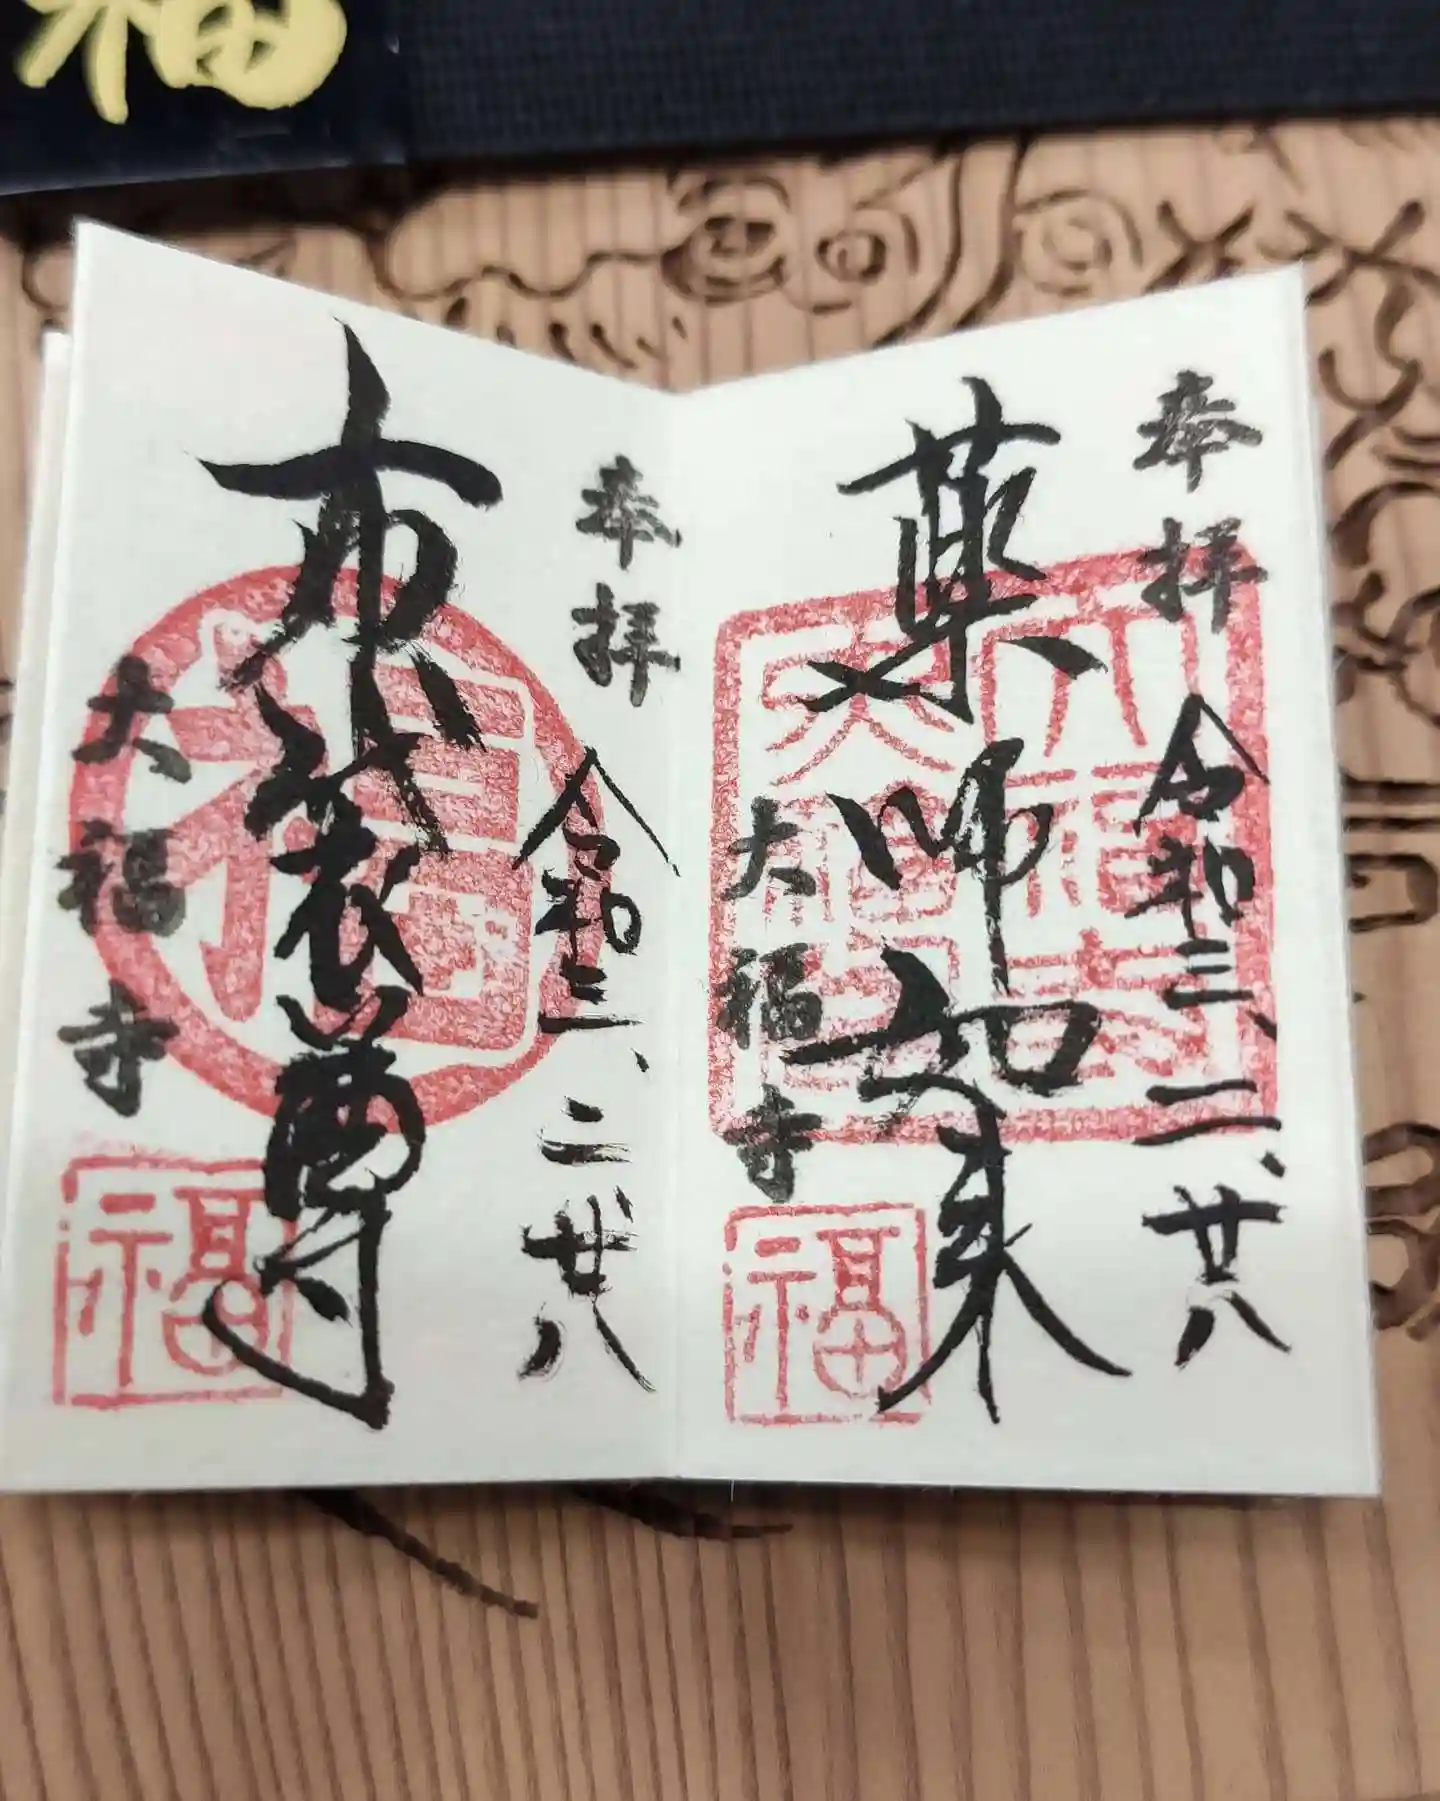 福
奉拝
令和三、二、廿八
薬師如来
大福寺
福
奉拝
令和三、二、廿八
布袋尊
大福寺
福
福